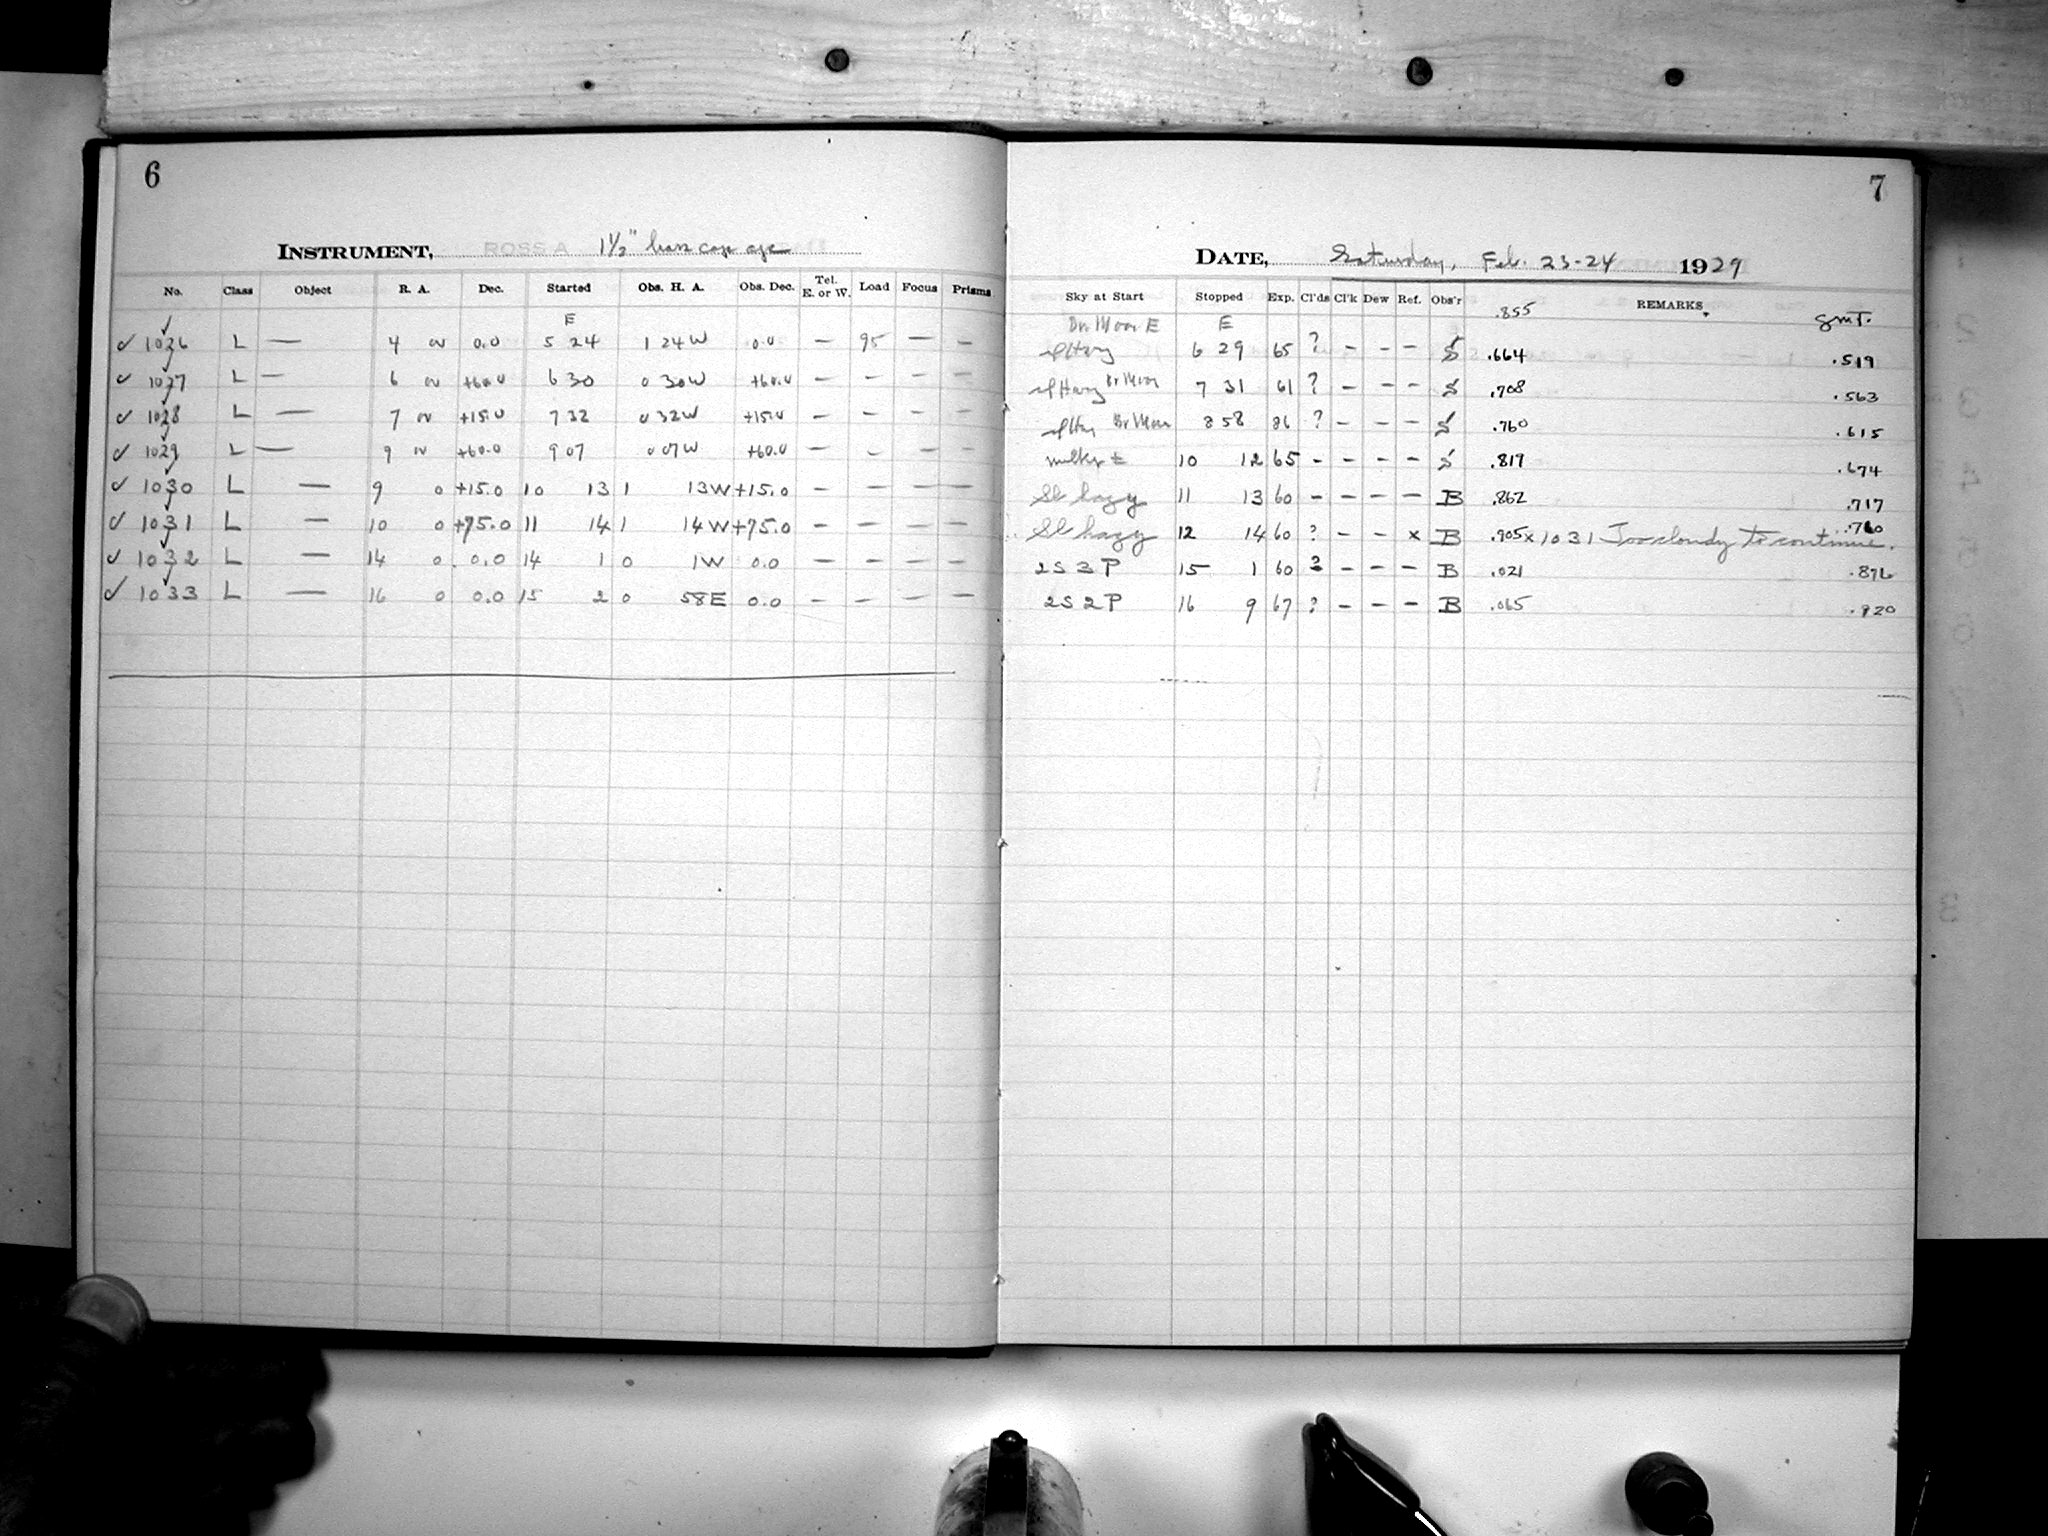 6
INSTRUMENT, ROSS A 1½"
No. Class Object R. A. Dec. Started Obs. H. A. Obs. Dec. Tel. E. or W. Load Focus Prisms
E
✓ 1026 L — 4 0 0.0 5 24 1 24W 0.0 — 95 — —
✓ 1027 L — 6 0 +60.0 6 30 0 30W +60.0 — — — —
✓ 1028 L — 7 0 +15.0 7 32 0 32W +15.0 — — — —
✓ 1029 L — 9 0 +60.0 9 07 0 07W +60.0 — — — —
✓ 1030 L — 9 0 +15.0 10 13 1 13W +15.0 — — — —
✓ 1031 L — 10 0 +75.0 11 14 1 14W +75.0 — — — —
✓ 1032 L — 14 0 0.0 14 1 0 1W 0.0 — — — —
✓ 1033 L — 16 0 0.0 15 2 0 58E 0.0 — — — —
7
DATE, Saturday, Feb. 23-24 1929
Sky at Start Stopped Exp. Cl'ds Cl'k Dew Ref. Obs'r REMARKS.
.855 GMT.
Br Moon E E
Sl Hazy 6 29 65 ? - - - S .664 .519
Sl Hazy Br Moon 7 31 61 ? - - - S .708 .563
Sl Hazy Br Moon 8 58 86 ? - - - S .760 .615
10 12 65 - - - - S .819 .674
Sl hazy 11 13 60 - - - - B .862 .717
Sl hazy 12 14 60 ? - - x B .905 x 1031 Too cloudy to continue. .760
2S 3P 15 1 60 ? - - - B .021 .876
2S 2P 16 9 67 ? - - - B .065 .920